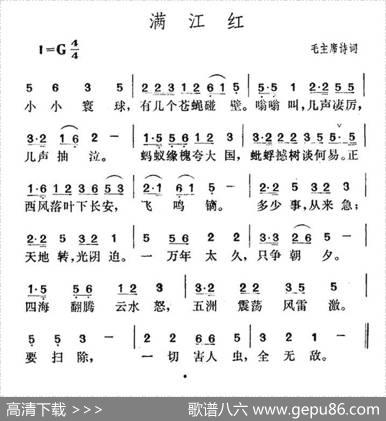 满江红
1=G 4/4
毛主席诗词
5 6 3 5 | 2 2 3 1 2 6 1 5 | 5·5 5·5
小小寰球,有几个苍蝇碰壁。嗡嗡叫,几声凄厉,
3·2 1 6 2 - | 1·5 5 6 1 1 2 | 5·5 1·2 3 3 2
几声抽泣。蚂蚁缘槐夸大国,蚍蜉撼树谈何易。正
1·6 1 2 3 6 5 3 | 2·1 6 1 5 - | 3·2 1 2 3
西风落叶下长安,飞鸣镝。多少事,从来急;
2·2 5 3 2 1 | 2·2 3 2 5 | 3·3 2 6 5 -
天地转,光阴迫。一万年太久,只争朝夕。
1·5 5 6 1 1 2 | 5·5 1·2 3 3 2
四海翻腾云水怒,五洲震荡风雷激。
5 5 3 - | 2 2 6 6 5 | 3 2 1 -
要扫除,一切害人虫,全无敌。
高清下载 >>>
歌谱八六 www.gepu86.com